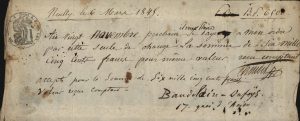 Neuilly le 6 Mars 1845. B.P. 6500
Au vingt Novembre prochain à mon ordre
par cette seule de change la somme de Six Mille
Cinq Cent francs pour même valeur
accepté pour la somme de Six mille cinq cents francs
Valeur reçue comptant
Baudelaire-Dufaÿs
17. quai d'Anjou